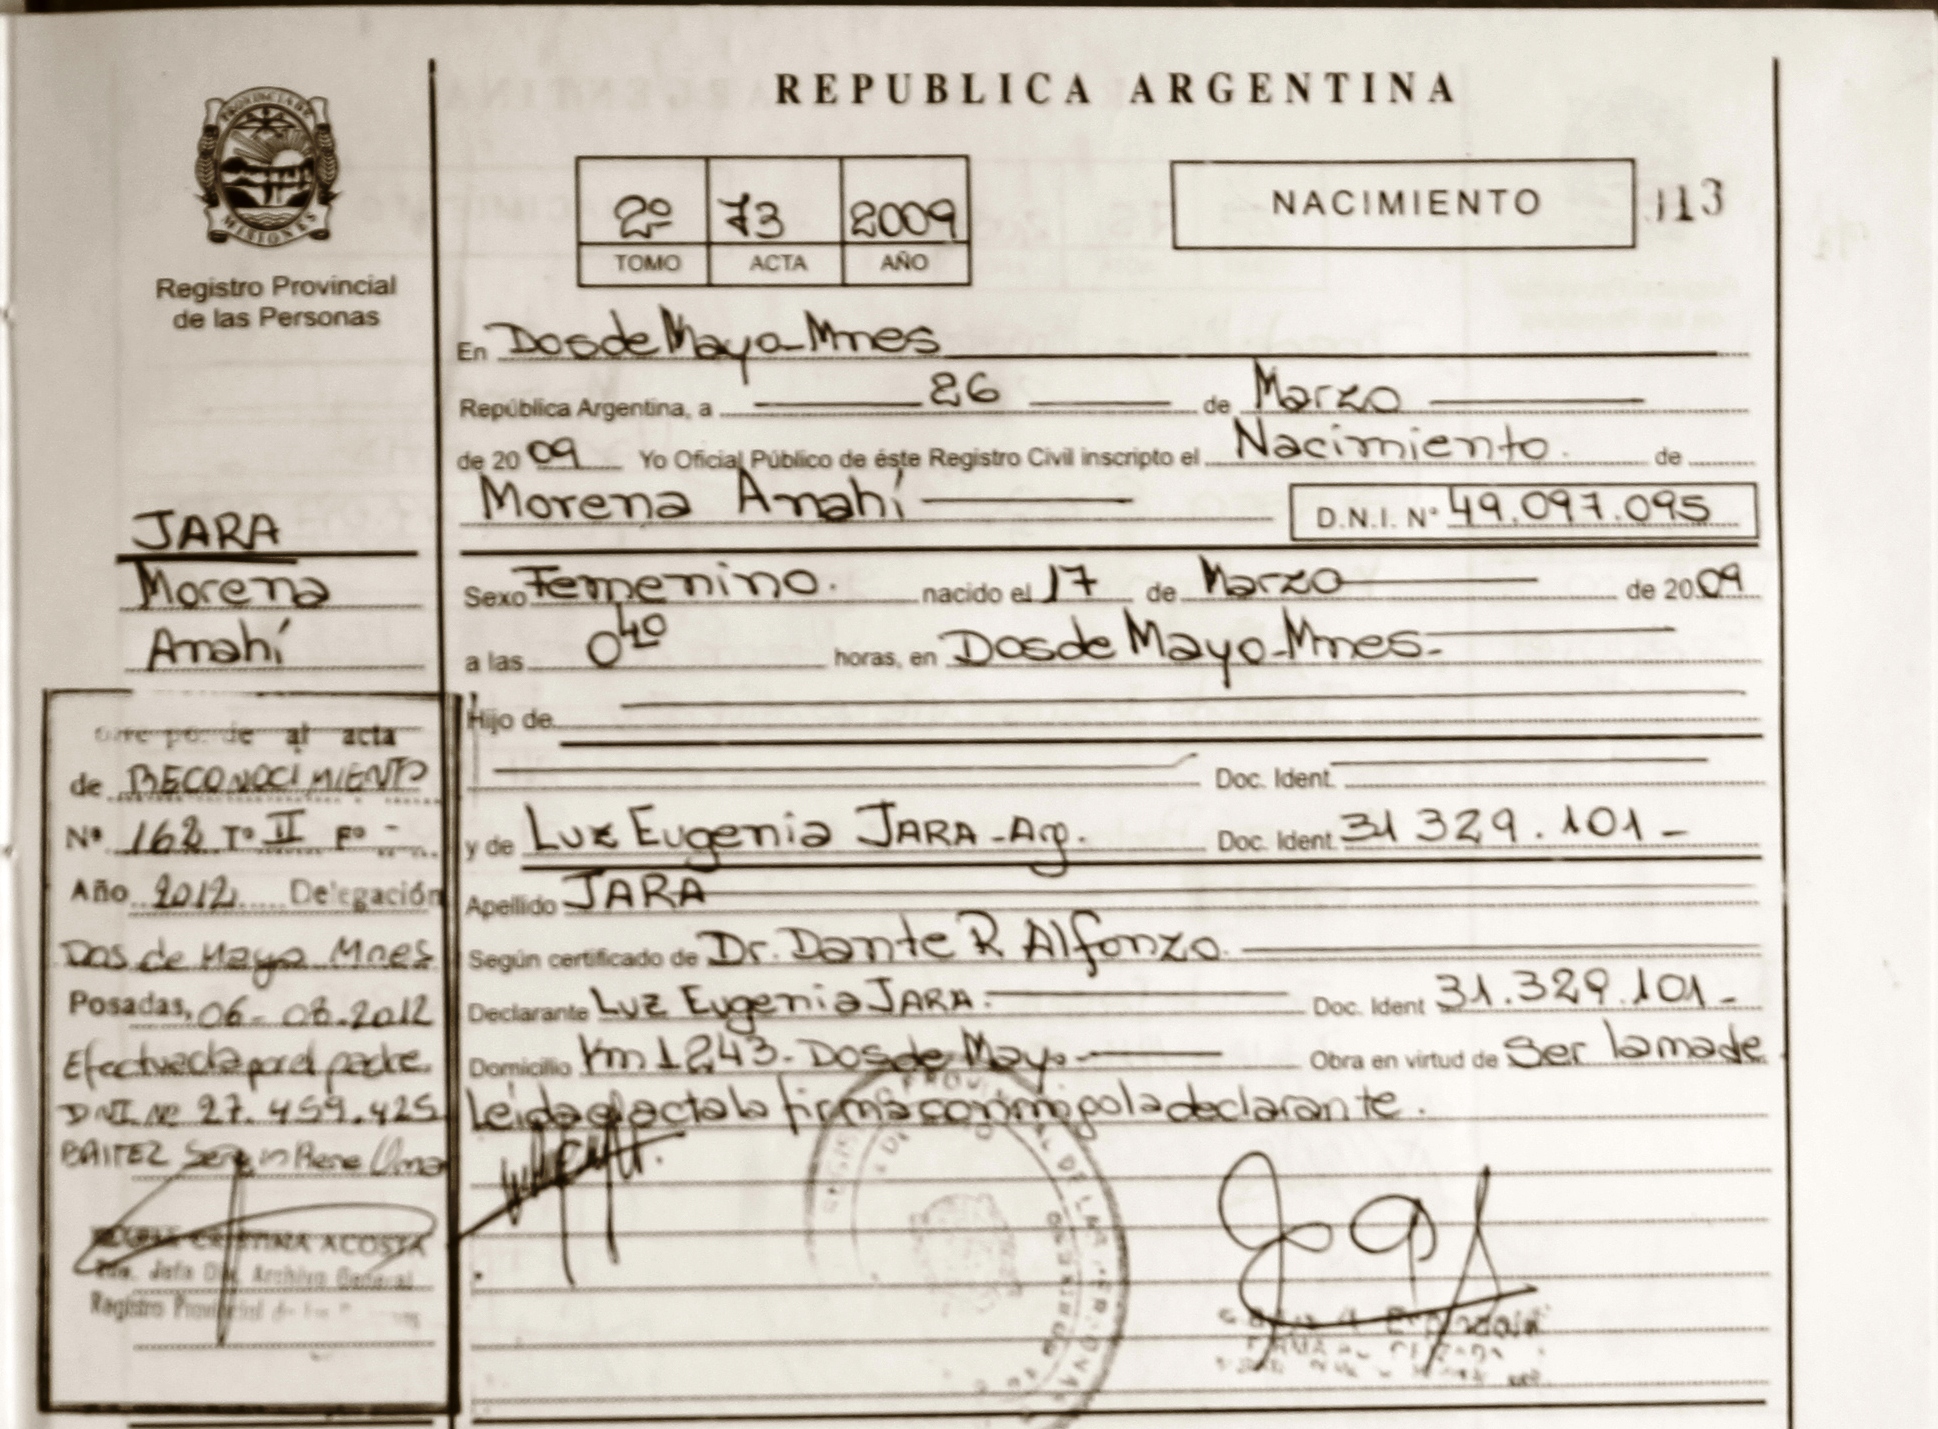 REPUBLICA ARGENTINA
PROVINCIA DE
MISIONES
Registro Provincial
de las Personas
2º 73 2009
TOMO ACTA AÑO
NACIMIENTO 113
En Dos de Mayo - Mnes
República Argentina, a 26 de Marzo
de 2009 Yo Oficial Público de éste Registro Civil inscripto el Nacimiento. de
Morena Anahí D.N.I. Nº 49.097.095
JARA
Morena
Anahí
Sexo Femenino. nacido el 17 de Marzo de 2009
a las 0 40 horas, en Dos de Mayo - Mnes.
Hijo de
Doc. Ident.
y de Luz Eugenia JARA - Arg. Doc. Ident. 31 329.101 -
Apellido JARA
Según certificado de Dr. Dante R Alfonzo.
Declarante Luz Eugenia JARA. Doc. Ident 31.329.101 -
Domicilio Km 1243 - Dos de Mayo Obra en virtud de Ser la made
Leida el acta la firma conmigo la declarante.
al acta
de RECONOCIMIENTO
Nº 162 Tº II Fº -
Año 2012 Delegación
Dos de Mayo Mnes
Posadas, 06 - 08 - 2012
Efectuada por el padre
DNI Nº 27.459.425
CRISTINA ACOSTA
Jefa Archivo General
Registro Provincial